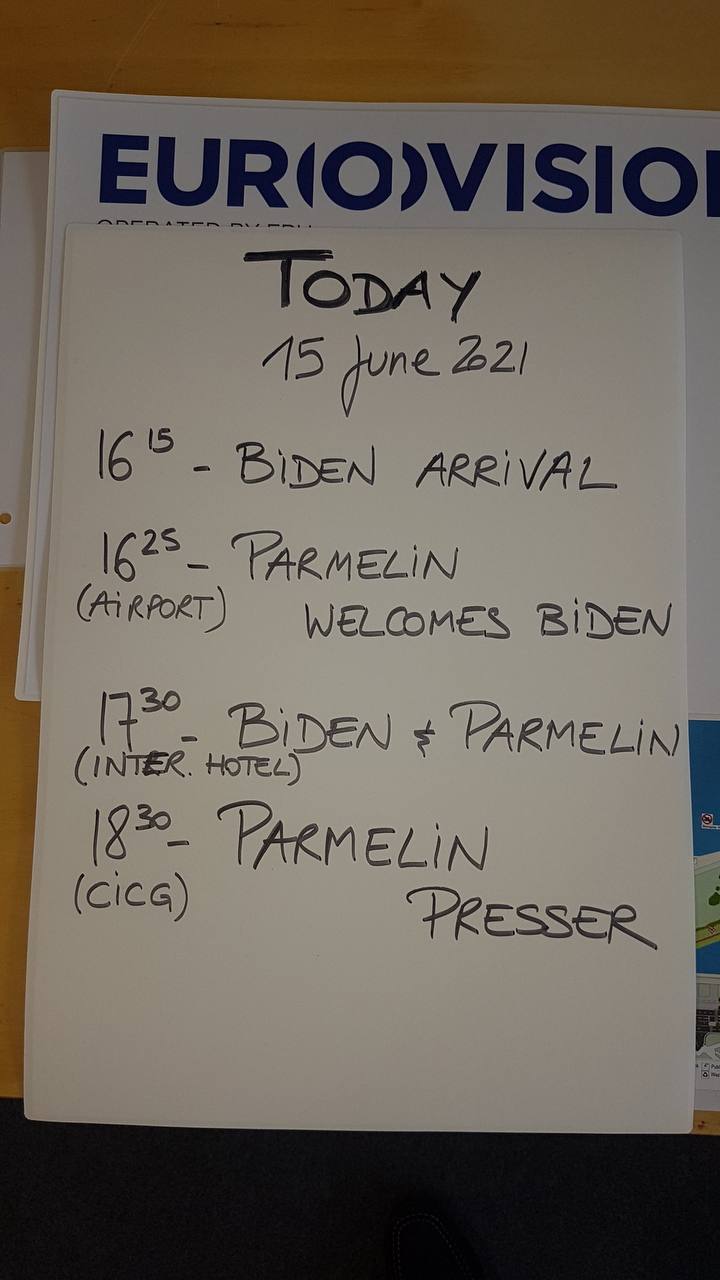 EUR(O)VISIO
OPERATED BY EBU
TODAY
15 June 2021
16 15 - BiDEN ARRiVAL
16 25 - PARMELiN
(AiRPORT) WELCOMES BiDEN
17 30 - BiDEN & PARMELiN
(INTER. HOTEL)
18 30 - PARMELiN
(CiCG)
PRESSER